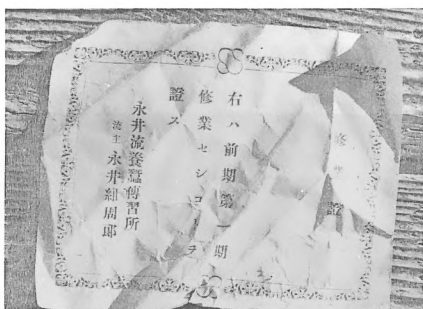 修業證
右ハ前期第一期
修業セシコヲ
證ス
永井流養蠶傳習所
流主永井紺周郎